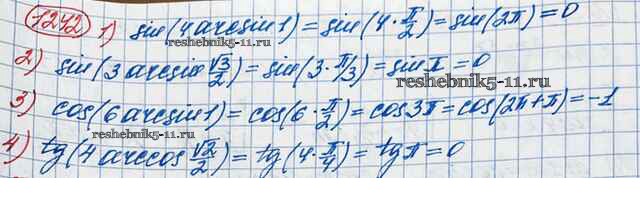 1242 1) sin(4 arcsin 1) = sin(4 · π/2) = sin(2π) = 0
2) sin(3 arcsin √3/2) = sin(3 · π/3) = sin π = 0
reshebnik5-11.ru
3) cos(6 arcsin 1) = cos(6 · π/2) = cos 3π = cos(2π + π) = -1
reshebnik5-11.ru
4) tg(4 arccos √2/2) = tg(4 · π/4) = tg π = 0